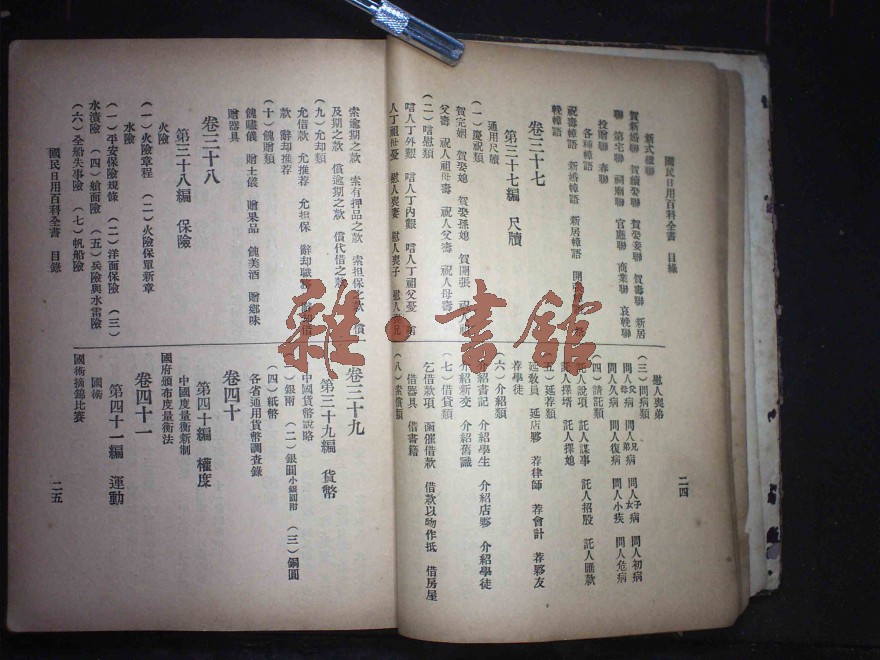 國民日用百科全書 目錄
二四
新式楹聯
賀新婚聯 賀續娶聯 賀娶妾聯 賀壽聯 新居
聯 第宅聯 祠廟聯 官廳聯 商業聯 哀輓聯
投贈聯 春聯
各種幛語
祝壽幛語 新婚幛語 新居幛語
輓幛語
卷三十七
第三十七編 尺牘
通用尺牘
(一)慶祝類
賀完姻 賀娶媳 賀娶孫媳 賀開張
父壽 祝人祖母壽 祝人父壽 祝人母壽
(二)唁慰類
唁人丁外艱 唁人丁內艱 唁人丁祖父憂 唁
人丁祖母憂 慰人喪妻 慰人喪子 慰人喪兄
慰人喪弟
(三)問病類
問人父母病 問人兄弟病 問人子女病 問人初病
問人久病 問人復病 問人小疾 問人危病
(四)請託類
託人說項 託人謀事 託人招股 託人匯款
託人擇壻 託人擇媳
(五)延荐類
延教員 延店夥 荐律師 荐會計 荐夥友
荐學徒
(六)介紹類
介紹書記 介紹學生 介紹店夥 介紹學徒
介紹新交 介紹舊識
(七)借貸類
乞借款項 函催借款 借款以物作抵 借房屋
借器具 借書籍
(八)索償類
索逾期之款 索有押品之款 索担保之款 償
及期之款 償逾期之款 償代借之款
(九)允却類
允借款 允推荐 允担保 辭却職務
款 辭却推荐
(十)餽贈類
餽贐儀 贈土儀 贈果品 餽美酒 贈鄉味
贈器具
卷三十八
第三十八編 保險
火險
(一)火險章程 (二)火險保單新章
水險
(一)平安保險規條 (二)洋面保險 (三)
水漬險 (四)艙面險 (五)兵險與水雷險
(六)全船失事險 (七)帆船險
國民日用百科全書 目錄
卷三十九
第三十九編 貨幣
中國貨幣說略
(一)銀兩 (二)銀圓小銀圓附 (三)銅圓
(四)紙幣
各省通用貨幣調查錄
卷四十
第四十編 權度
中國度量衡新制
國府頒布度量衡法
卷四十一
第四十一編 運動
國術
國術摘錦比賽
二五
雜·書館